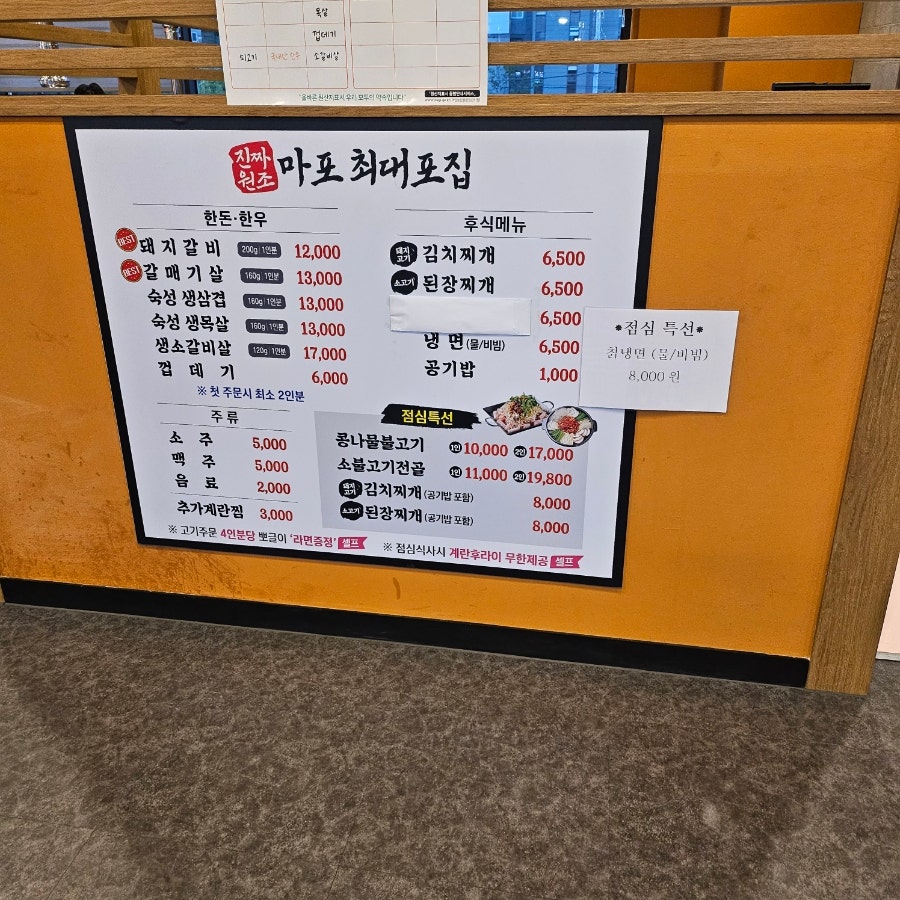 목살
껍데기
되고기 소갈비살
"올바른 원산지표시 우리 모두의 약속입니다"
진짜 원조 마포 최대포집
한돈·한우
BEST 돼지갈비 200g 1인분 12,000
BEST 갈매기살 160g 1인분 13,000
숙성 생삼겹 160g 1인분 13,000
숙성 생목살 160g 1인분 13,000
생소갈비살 120g 1인분 17,000
껍데기 6,000
※ 첫 주문시 최소 2인분
주류
소주 5,000
맥주 5,000
음료 2,000
추가계란찜 3,000
※ 고기주문 4인분당 뽀글이 '라면증정' 셀프
후식메뉴
돼지고기 김치찌개 6,500
소고기 된장찌개 6,500
6,500
냉면(물/비빔) 6,500
공기밥 1,000
점심특선
콩나물불고기 1인 10,000 2인 17,000
소불고기전골 1인 11,000 2인 19,800
돼지고기 김치찌개(공기밥 포함) 8,000
소고기 된장찌개(공기밥 포함) 8,000
※ 점심식사시 계란후라이 무한제공 셀프
*점심 특선*
칡냉면 (물/비빔)
8,000 원